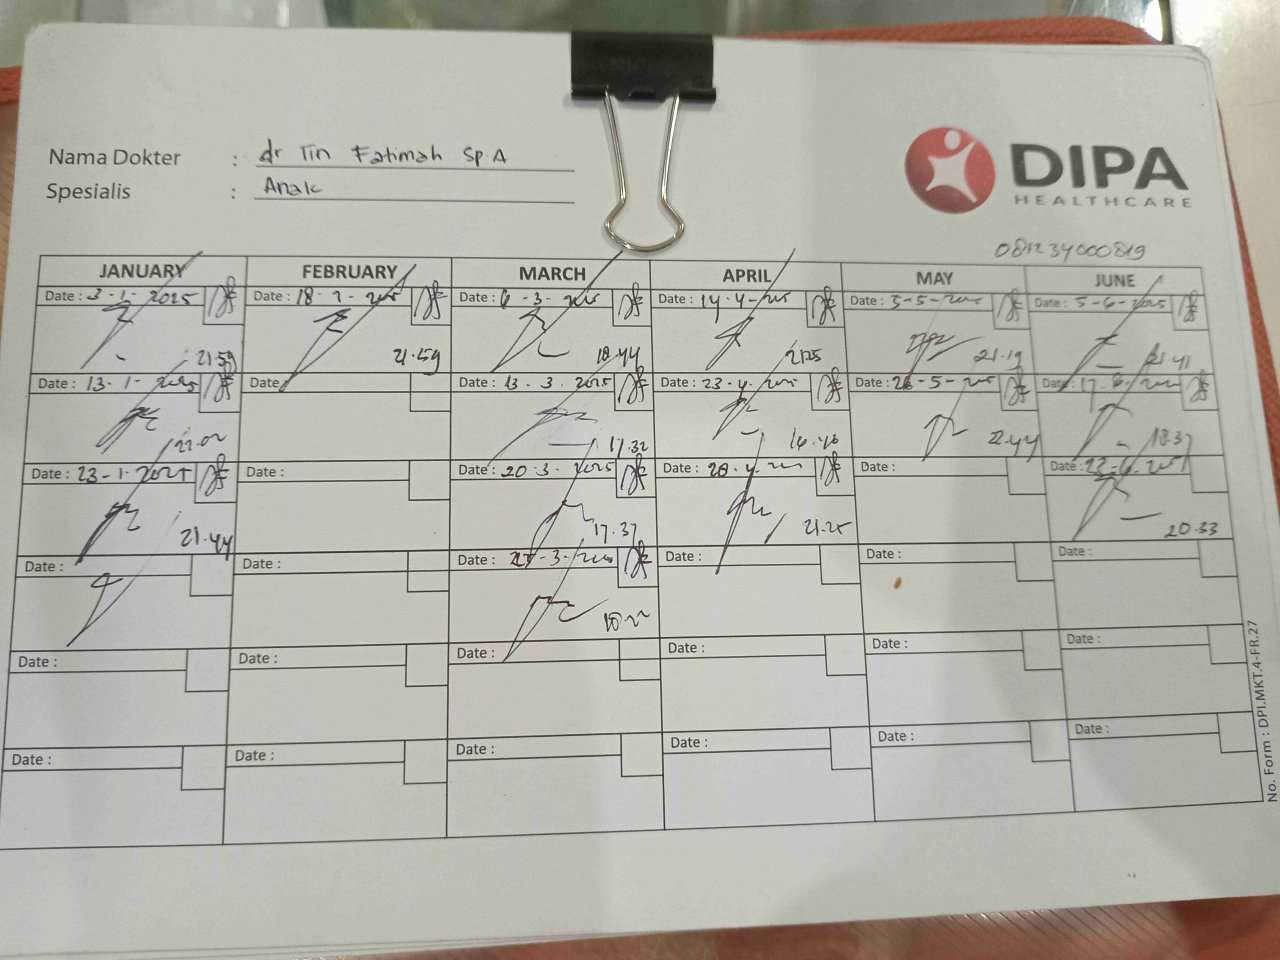 Nama Dokter : dr Tin Fatimah Sp A
Spesialis : Anak
DIPA
HEALTHCARE
081234000819
JANUARY FEBRUARY MARCH APRIL MAY JUNE
Date : 3-1-2025 Date : 18-2-2025 Date : 6-3-2025 Date : 14-4-2025 Date : 5-5-2025 Date : 5-6-2025
21.59 21.59 18.44 21.25 21.19 21.41
Date : 13-1-2025 Date : Date : 13-3-2025 Date : 23-4-2025 Date : 26-5-2025 Date : 17-6-2025
22.02 17.32 16.46 22.44 18.37
Date : 23-1-2025 Date : Date : 20-3-2025 Date : 28-4-2025 Date : Date : 23-6-2025
21.44 17.37 21.25 20.33
Date : Date : Date : 27-3-2025 Date : Date : Date :
18.22
Date : Date : Date : Date : Date : Date :
Date : Date : Date : Date : Date : Date :
No. Form : DPI.MKT.4-FR.27